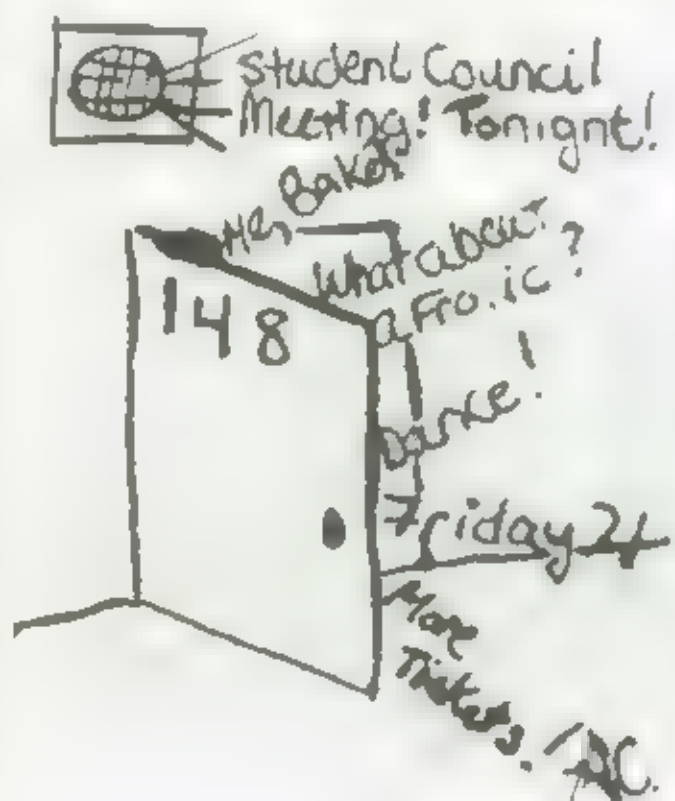 Student Council
Meeting! Tonight!
Baker
148
What about
a Fro.ic?
Dance!
Friday 24
More
Tickets.